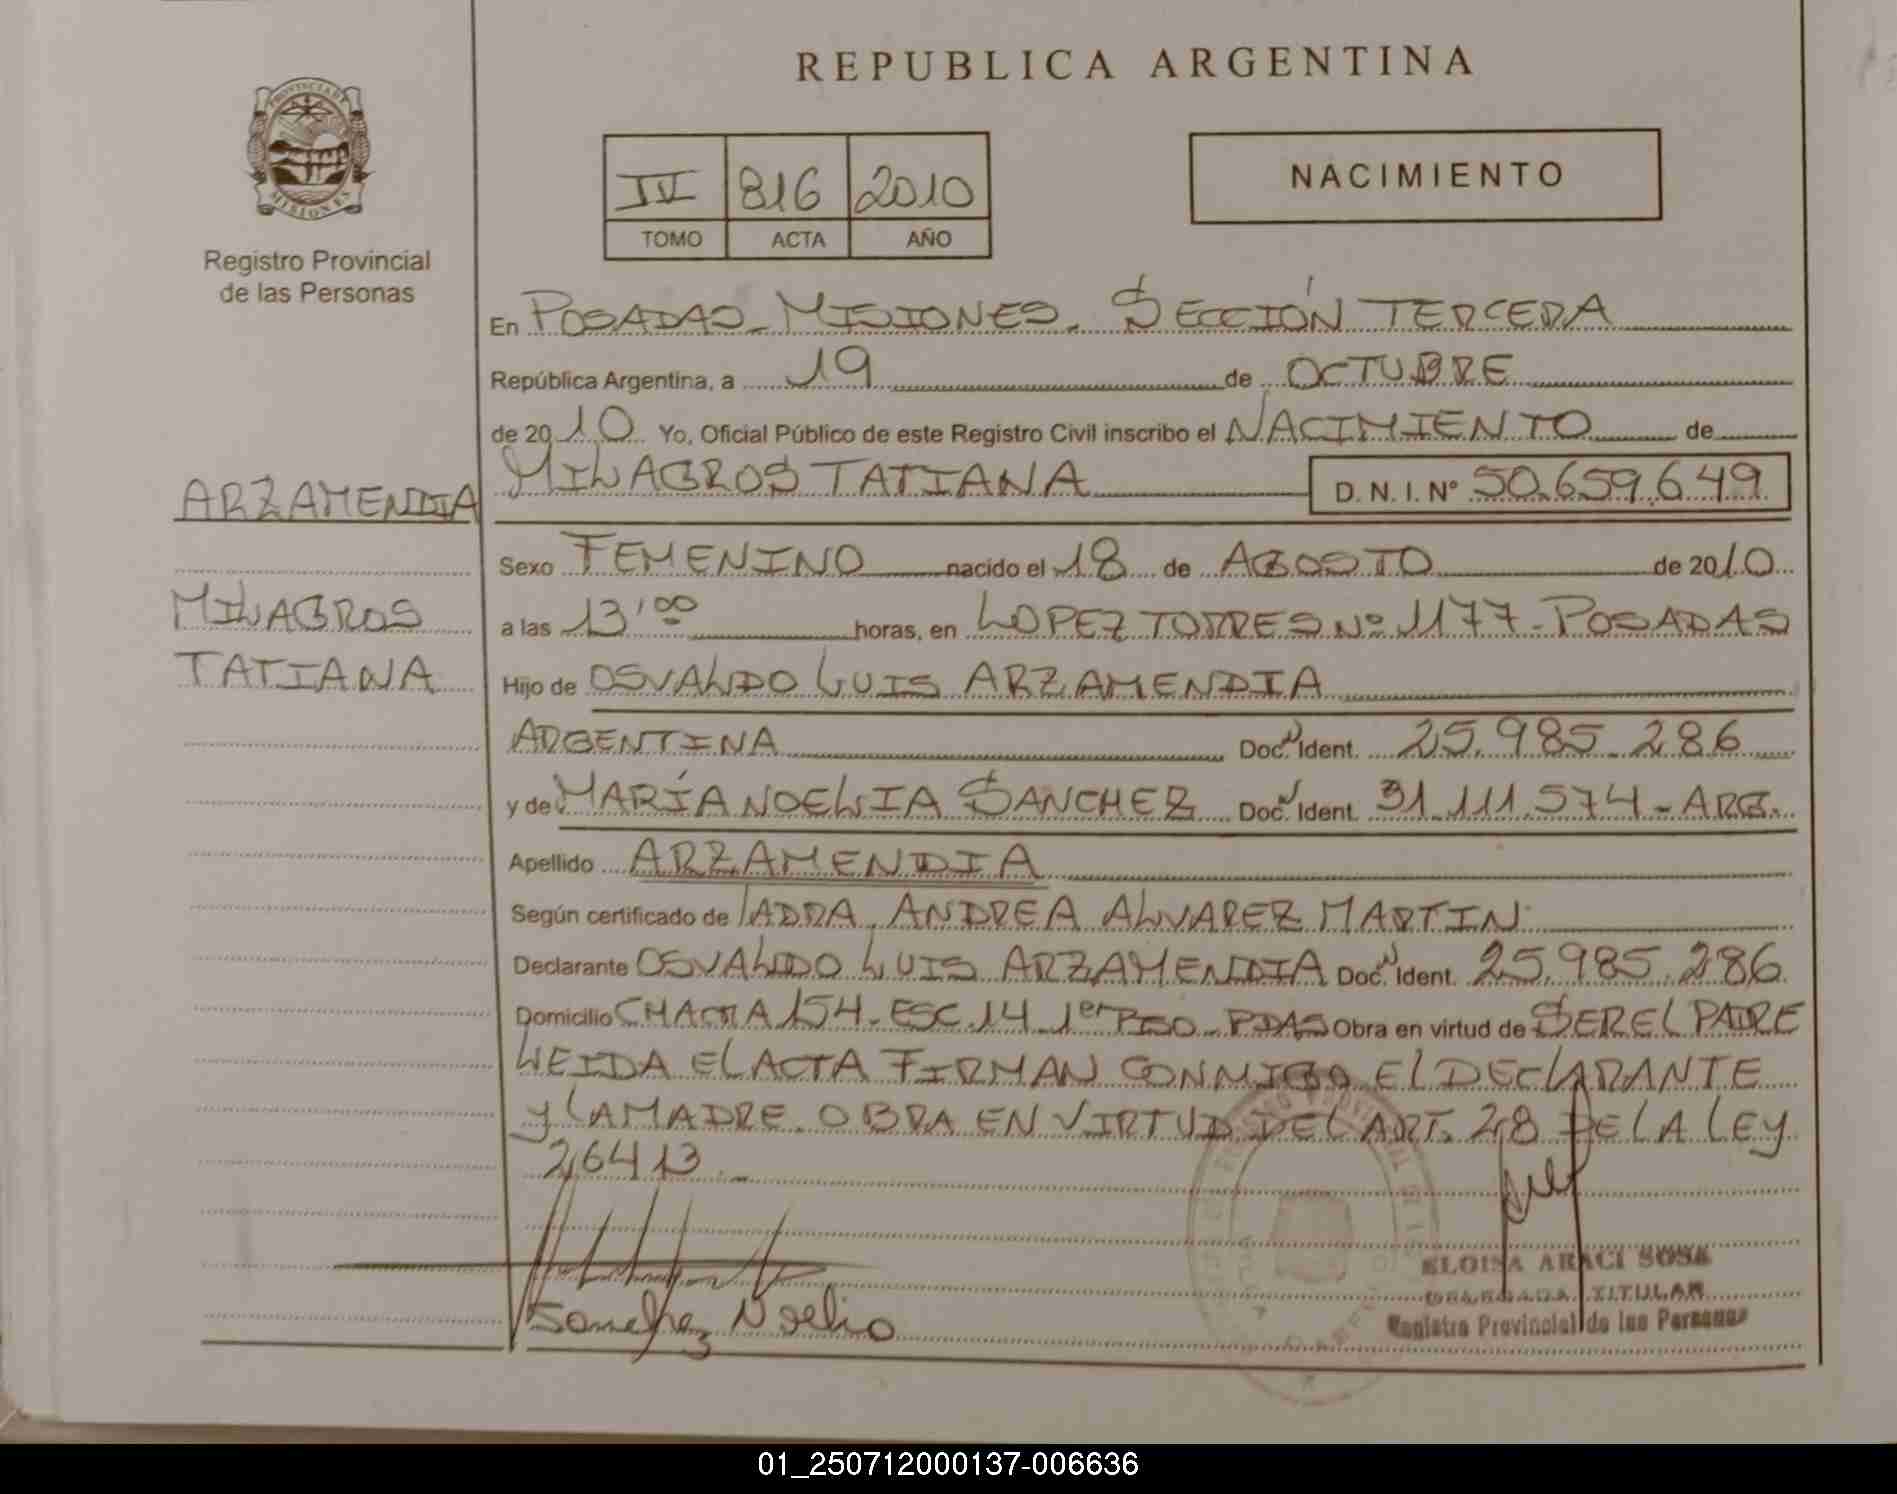 REPUBLICA ARGENTINA
PROVINCIA DE
MISIONES
Registro Provincial
de las Personas
IV 816 2010
TOMO ACTA AÑO
NACIMIENTO
En POSADAS - MISIONES - SECCIÓN TERCERA
República Argentina, a 19 de OCTUBRE
de 2010 Yo, Oficial Público de este Registro Civil inscribo el NACIMIENTO de
MILAGROS TATIANA D. N. I. Nº 50.659.649
ARZAMENDIA
MILAGROS
TATIANA
Sexo FEMENINO nacido el 18 de AGOSTO de 2010
a las 13'00 horas, en LOPEZ TORRES Nº 1177 - POSADAS
Hijo de OSVALDO LUIS ARZAMENDIA
ARGENTINA Doc. Ident. 25.985.286
y de MARÍA NOELIA SANCHEZ Doc. Ident. 31.111.574 - ARG.
Apellido ARZAMENDIA
Según certificado de ANDREA ALVAREZ MARTIN
Declarante OSVALDO LUIS ARZAMENDIA Doc. Ident. 25.985.286
Domicilio CHACRA 154 - ESC. 14 - 1er PISO - PDAS Obra en virtud de SER EL PADRE
LEIDA EL ACTA FIRMAN CONMIGO EL DECLARANTE
Y LA MADRE. OBRA EN VIRTUD DEL ART. 28 DE LA LEY
26413.-
Sanchez Noelia
ELOISA ARACI SOSA
DELEGADA TITULAR
Registro Provincial de las Personas
01_250712000137-006636